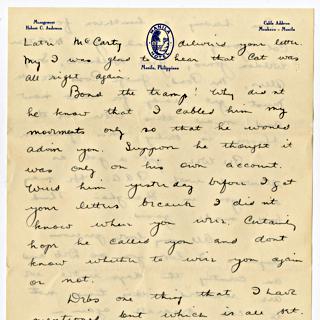 Management
Robert C. Anderson
MANILA HOTEL
Manila, Philippines
Cable Address
Manhotco - Manila
Later McCarty delivers your letter.
My I was glad to hear that Cat was
all right again.
Bond the tramp! Why didn't
he know that I cabled him my
movements only so that he would
advise you. Suppose he thought it
was only on his own account.
Wired him yesterday before I got
your letters because I didn't
know where you were. Certainly
hope he called you and dont
know whether to wire you again
or not.
Debs one thing that I have
mentioned but which is all set.